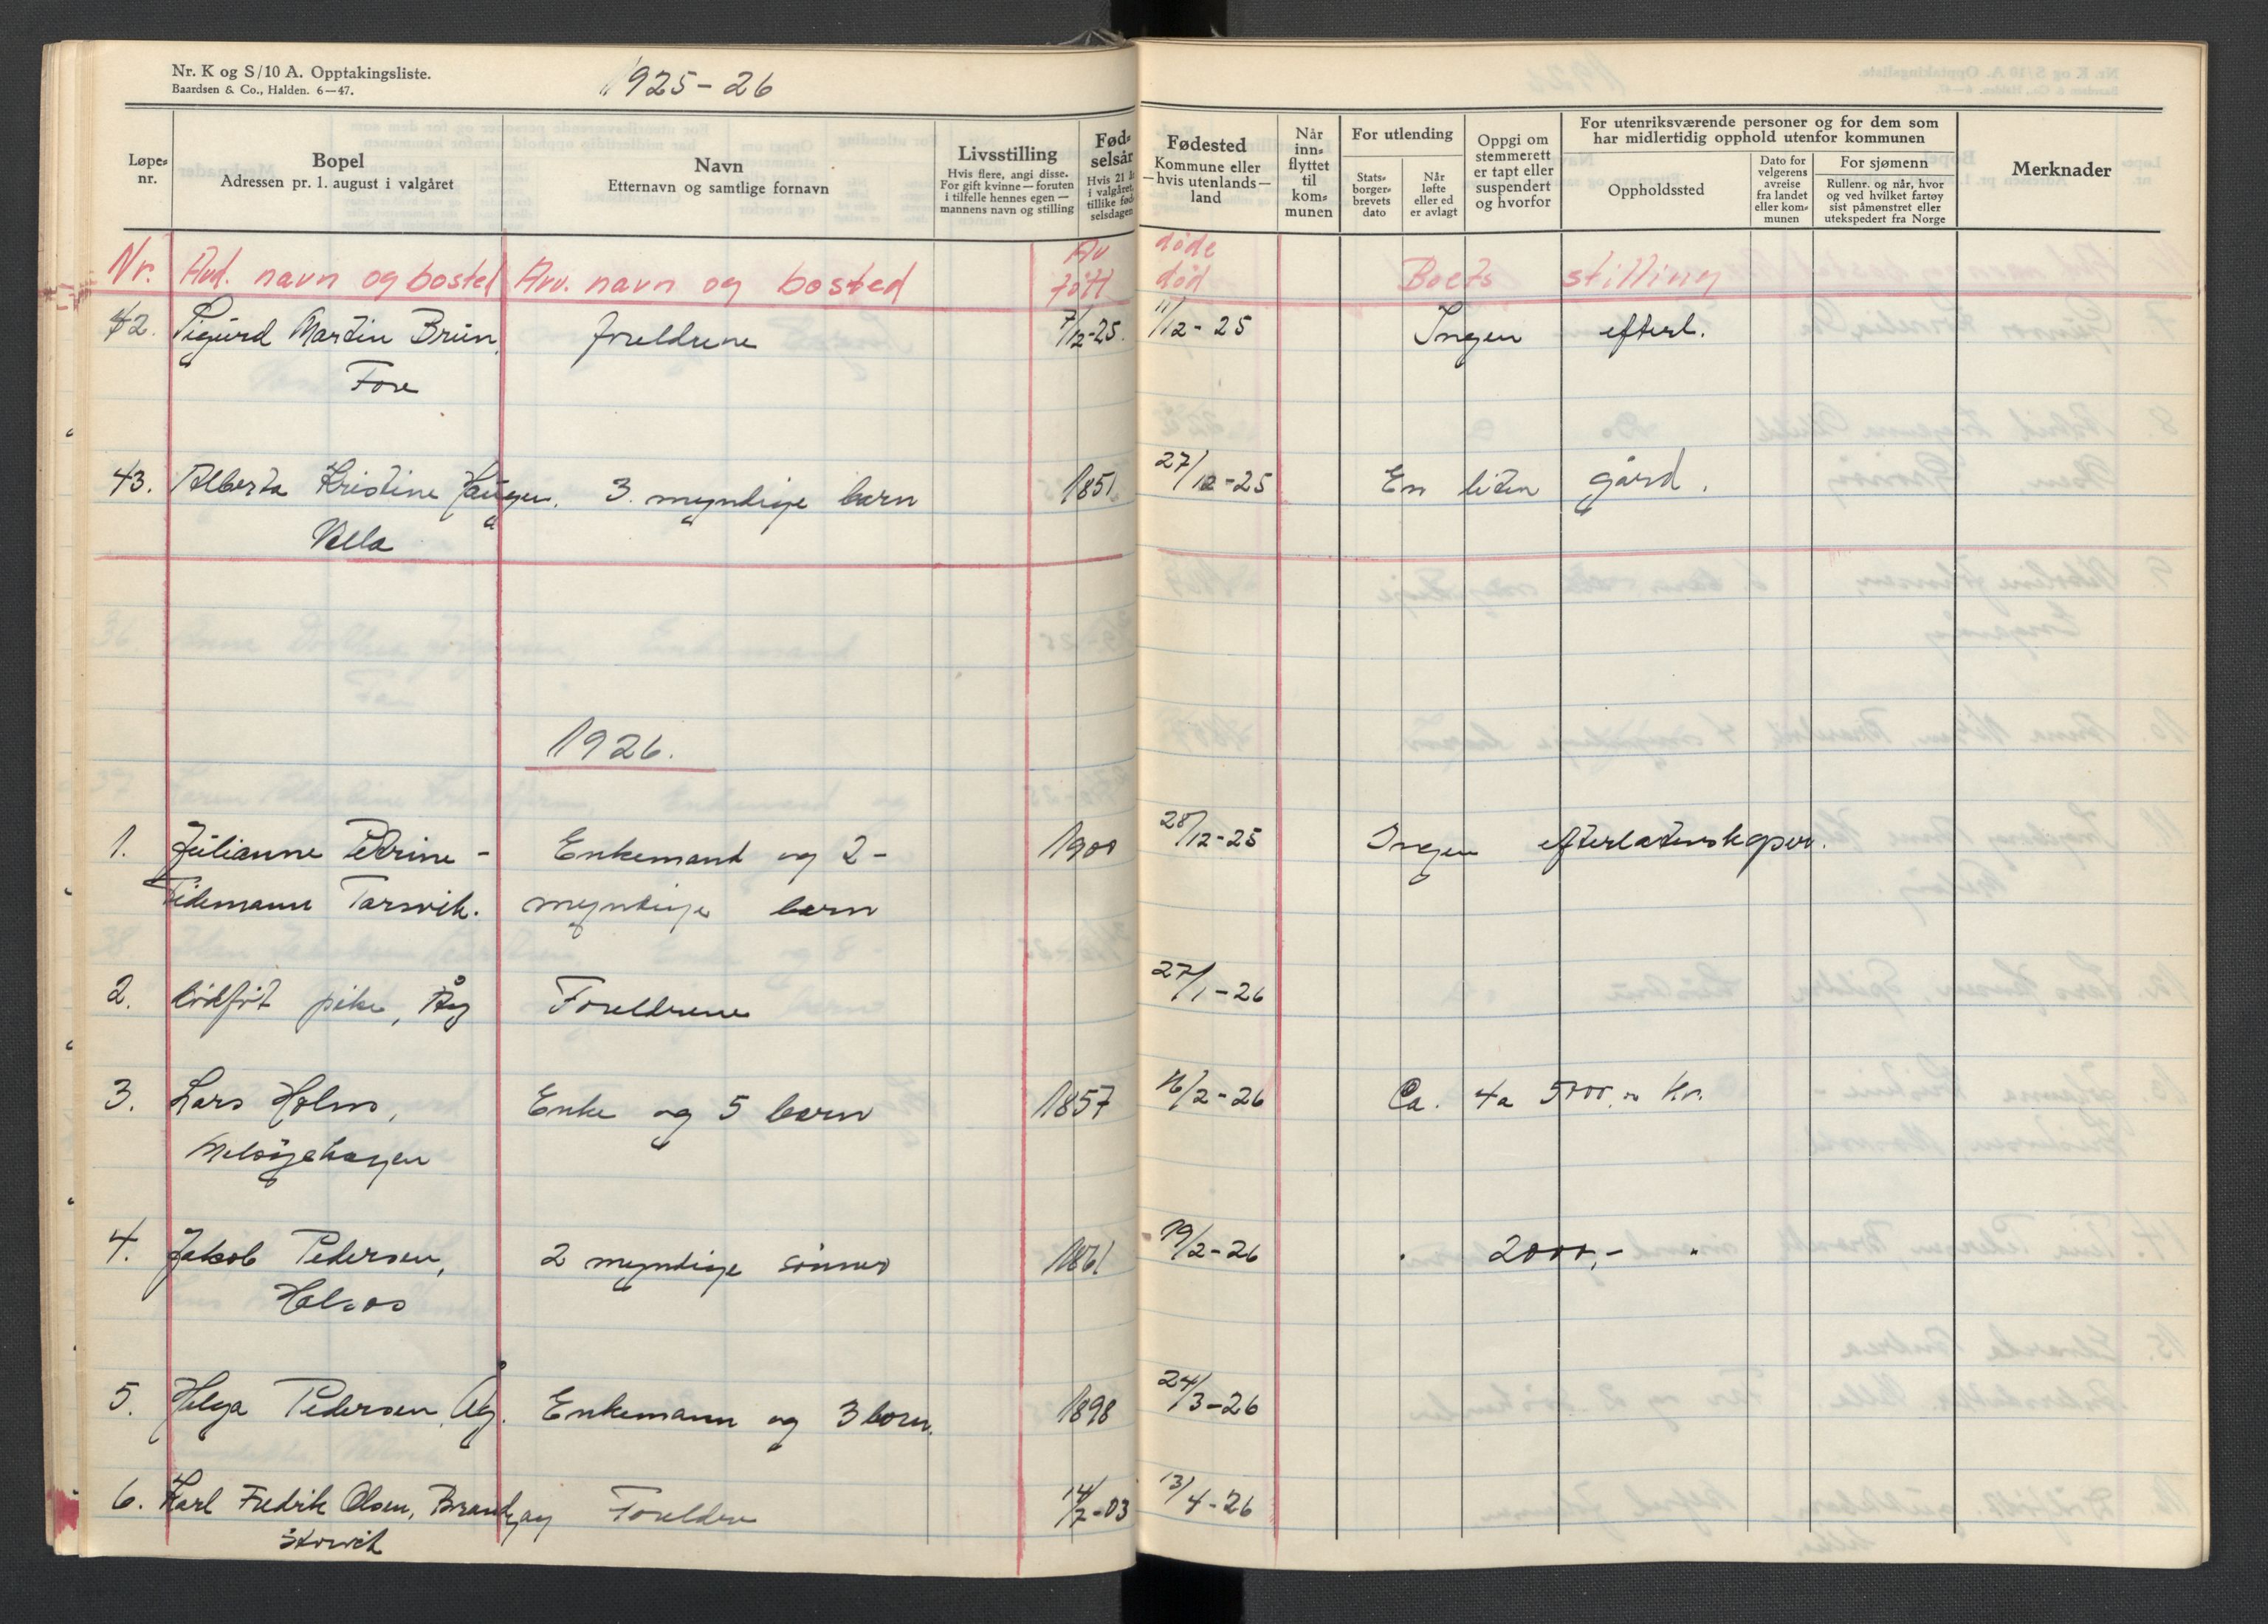 Nr. K og S/10 A. Opptakingsliste.
Baardsen & Co., Halden. 6—47.
1925-26
Løpe-
nr.
Bopel
Adressen pr. 1. august i valgåret
Navn
Etternavn og samtlige fornavn
Livsstilling
Hvis flere, angi disse.
For gift kvinne — foruten
i tilfelle hennes egen —
mannens navn og stilling
Fød-
selsår
Hvis 21 å
i valgåret,
tillike fød-
selsdagen
Fødested
Kommune eller
—hvis utenlands—
land
Når
inn-
flyttet
til
kom-
munen
For utlending
Stats-
borger-
brevets
dato
Når
løfte
eller ed
er avlagt
Oppgi om
stemmerett
er tapt eller
suspendert
og hvorfor
For utenriksværende personer og for dem som
har midlertidig opphold utenfor kommunen
Oppholdssted
Dato for
velgerens
avreise
fra landet
eller kom-
munen
For sjømenn
Rullenr. og når, hvor
og ved hvilket fartøy
sist påmønstret eller
utekspedert fra Norge
Merknader
Nr. Avd. navn og bosted Arv. navn og bosted Av døde
født død Boets stilling
42. Sigurd Martin Brun, foreldrene 7/12-25. 11/12-25 Ingen efterl.
Fore
43. Alberta Kristine Haugen. 3 myndige barn 1851 27/12-25 En liten gård.
Valla
1926.
1. Julianne Petrine - Enkemand og 2- 1900 28/12-25 Ingen efterlatenskaper.
Tidemann Tarsvik. myndige barn
2. Dødføt pike, Åg Foreldrene 27/1-26
3. Lars Holm, Enke og 5 barn 1857 16/2-26 Ca. 4a 5000,- Kr.
Meløgshagen
4. Jakob Pedersen, 2 myndige sønner 1861 19/2-26 " 2000,- "
Halsos
5. Helga Pedersen, Åg. Enkemann og 3 barn. 1898 24/3-26
6. Karl Fredrik Olsen, Foreldre 14/7-03 13/4-26
Storvik